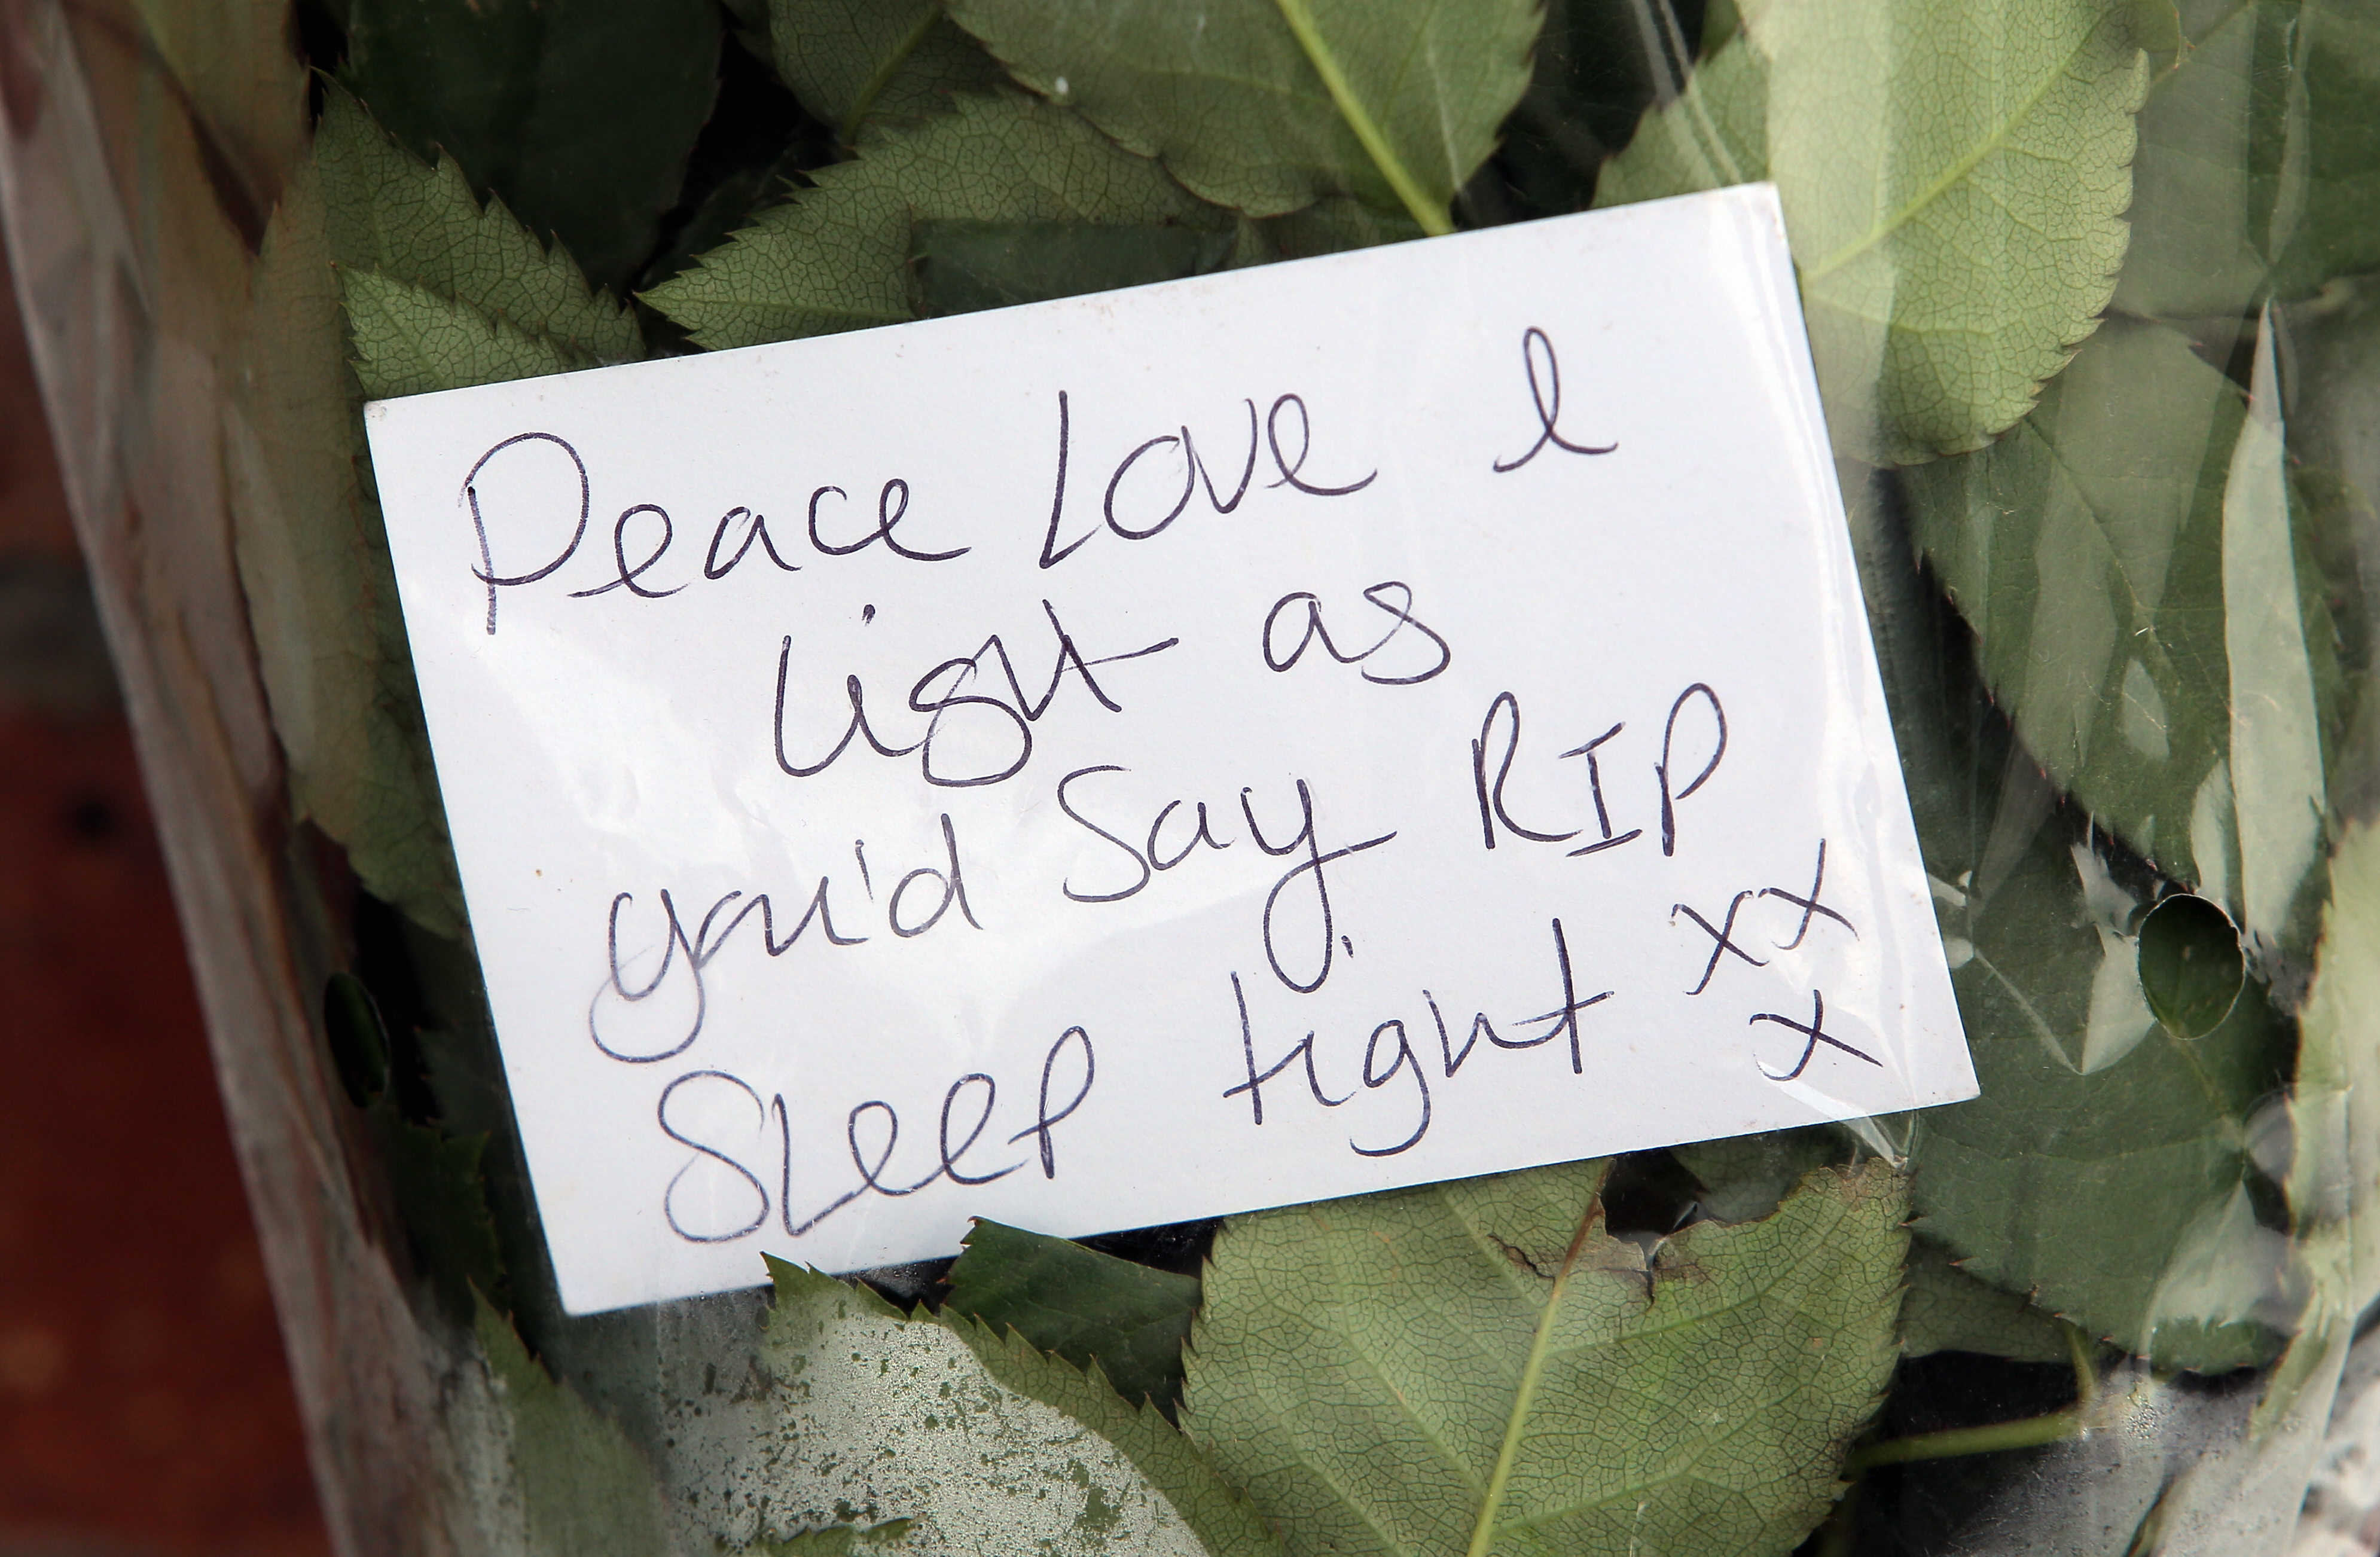 Peace Love &
Light as
you'd Say RIP
Sleep tight xx
x